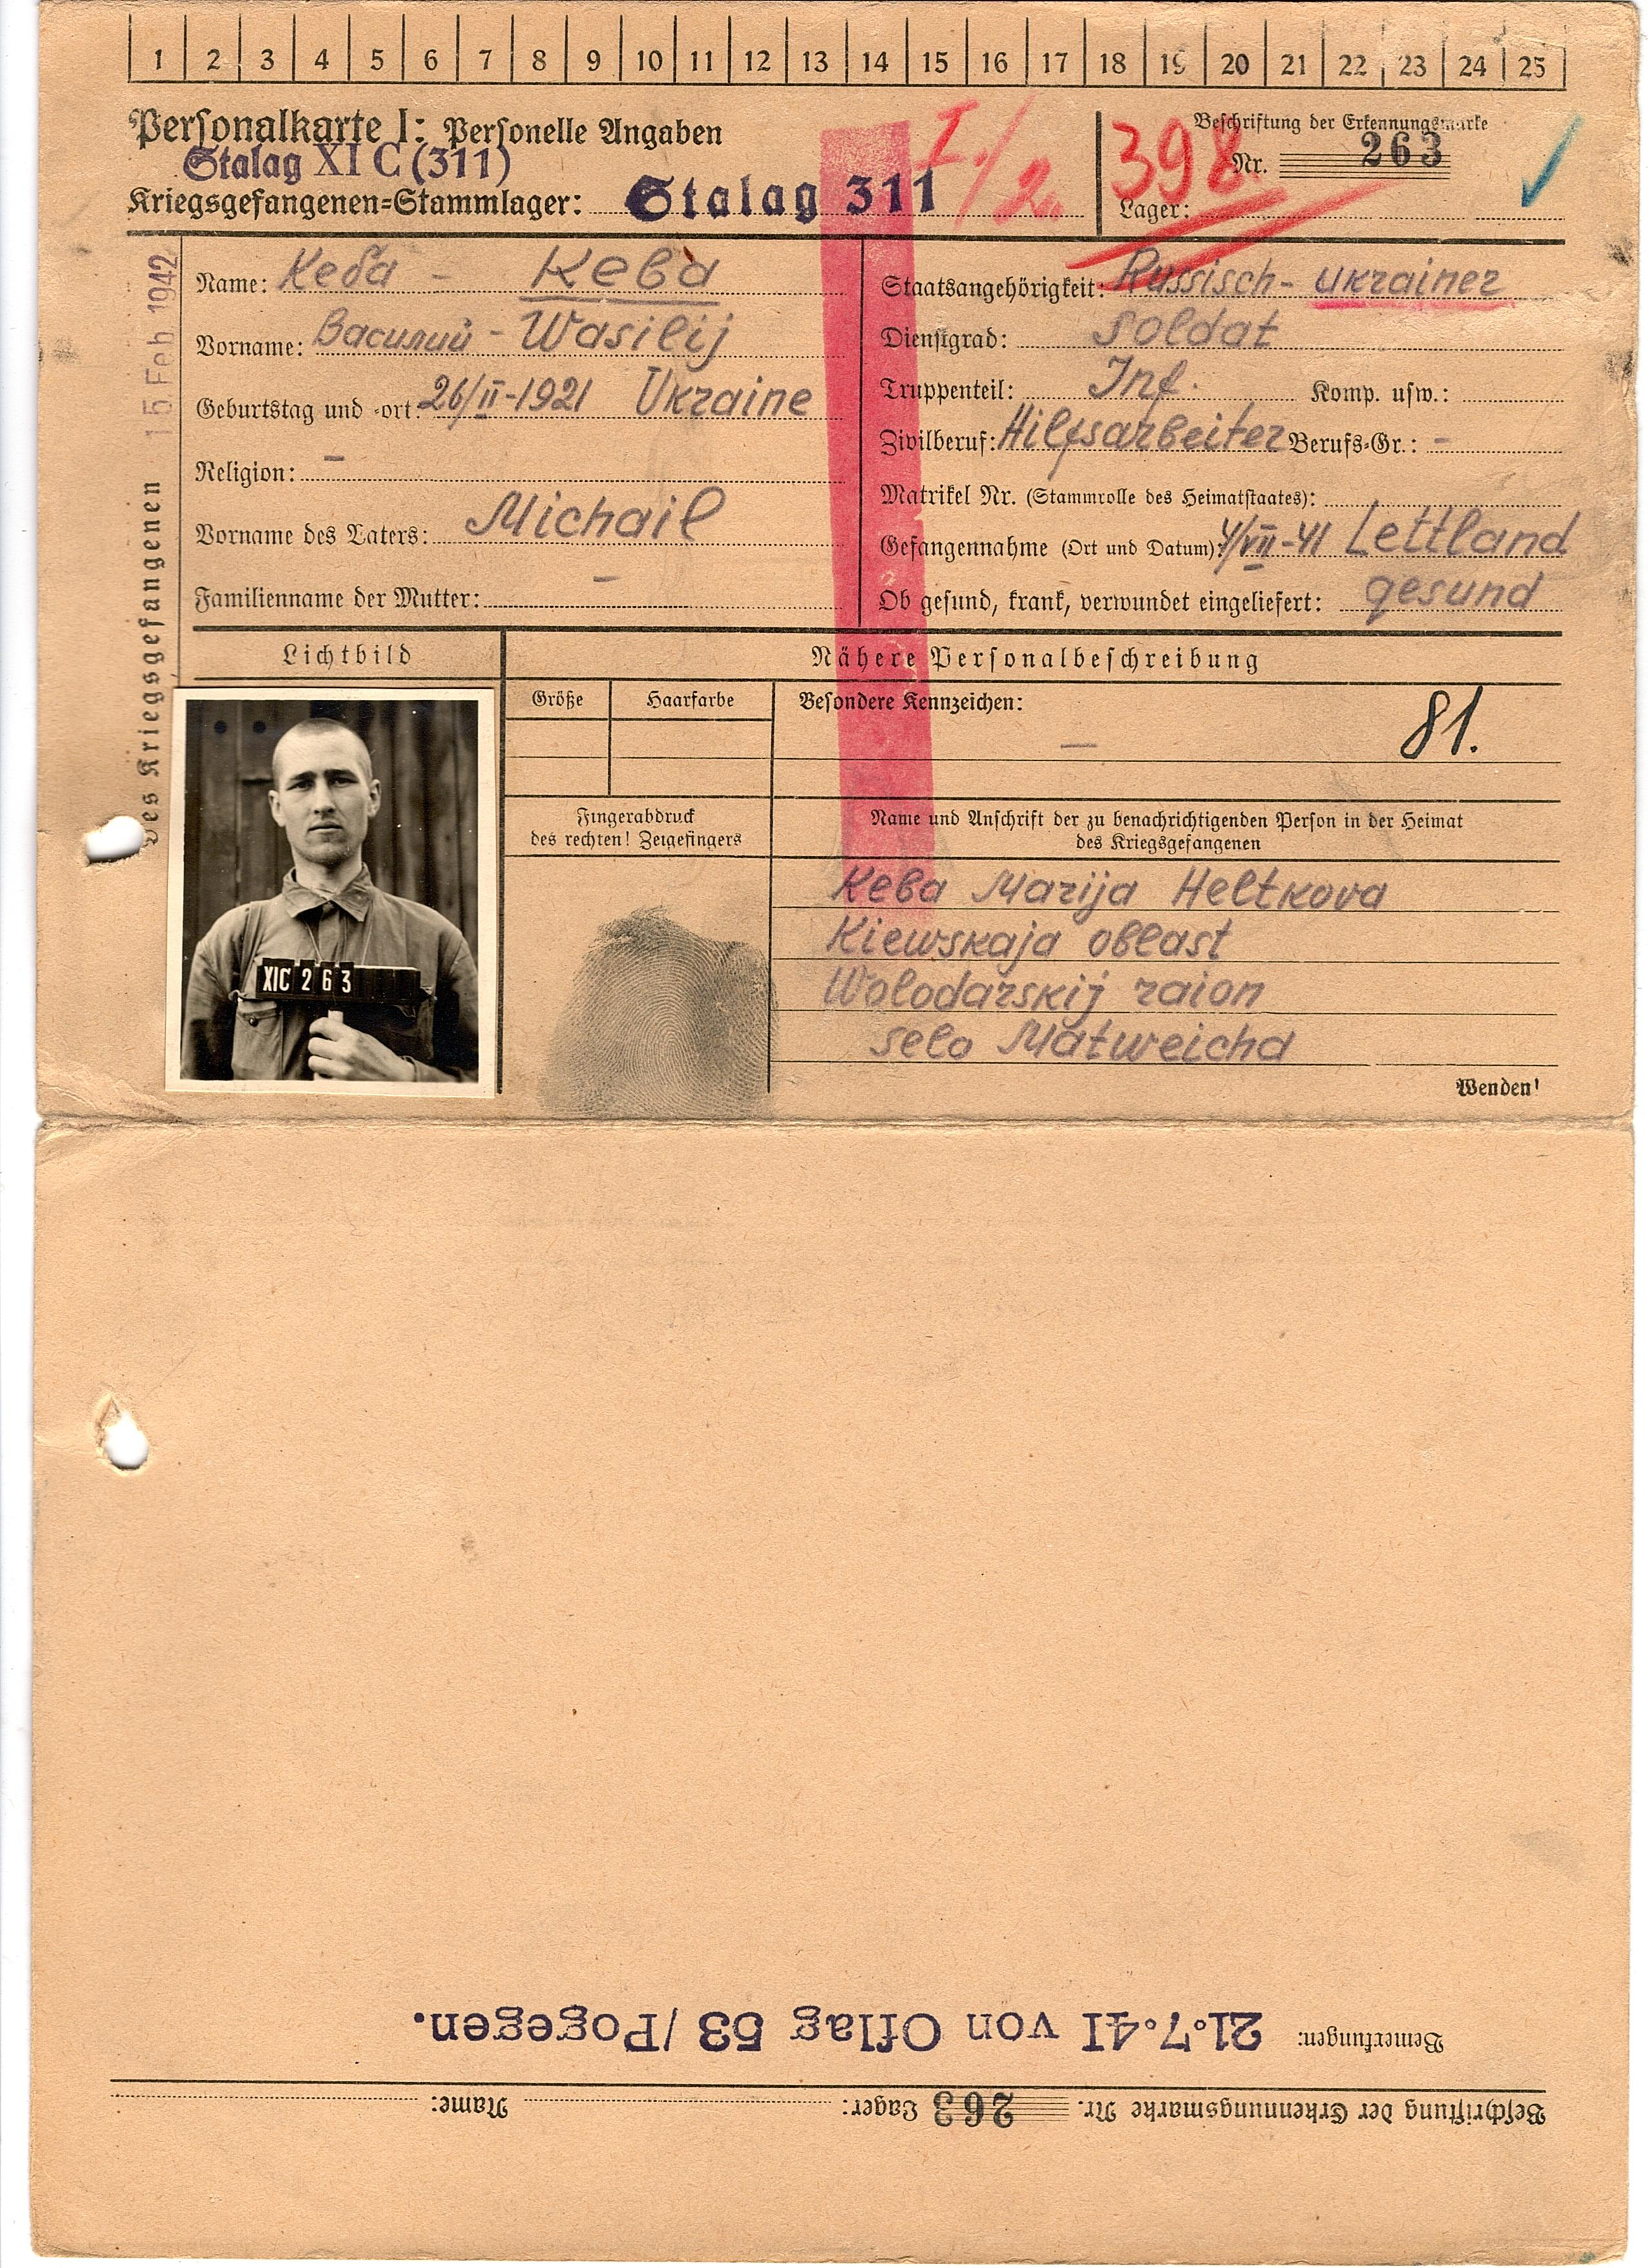 1 2 3 4 5 6 7 8 9 10 11 12 13 14 15 16 17 18 19 20 21 22 23 24 25
Personalkarte I: Personelle Angaben
Stalag XI C (311)
Kriegsgefangenen-Stammlager: Stalag 311
I./2.
398.
Beschriftung der Erkennungsmarke
Nr. 263
Lager:
15. Feb. 1942
Des Kriegsgefangenen
Name: Кеба - Keba
Vorname: Василий - Wasilij
Geburtstag und -ort: 26/II-1921 Ukraine
Religion: -
Vorname des Vaters: Michail
Familienname der Mutter: -
Staatsangehörigkeit: Russisch- ukrainer
Dienstgrad: soldat
Truppenteil: Inf. Komp. usw.:
Zivilberuf: Hilfsarbeiter Berufs-Gr.: -
Matrikel Nr. (Stammrolle des Heimatstaates):
Gefangennahme (Ort und Datum): 4/VII-41 Lettland
Ob gesund, krank, verwundet eingeliefert: gesund
Lichtbild
Nähere Personalbeschreibung
Größe
Haarfarbe
Besondere Kennzeichen:
-
81.
XIC 263
Fingerabdruck
des rechten! Zeigefingers
Name und Anschrift der zu benachrichtigenden Person in der Heimat
des Kriegsgefangenen
Keba Marija Heltkova
Kiewskaja oblast
Wolodarskij raion
selo Matweicha
Wenden!
Beschriftung der Erkennungsmarke Nr. 263 Lager: Name:
Bemerkungen: 21.7.41 von Oflag 53/Pogegen.